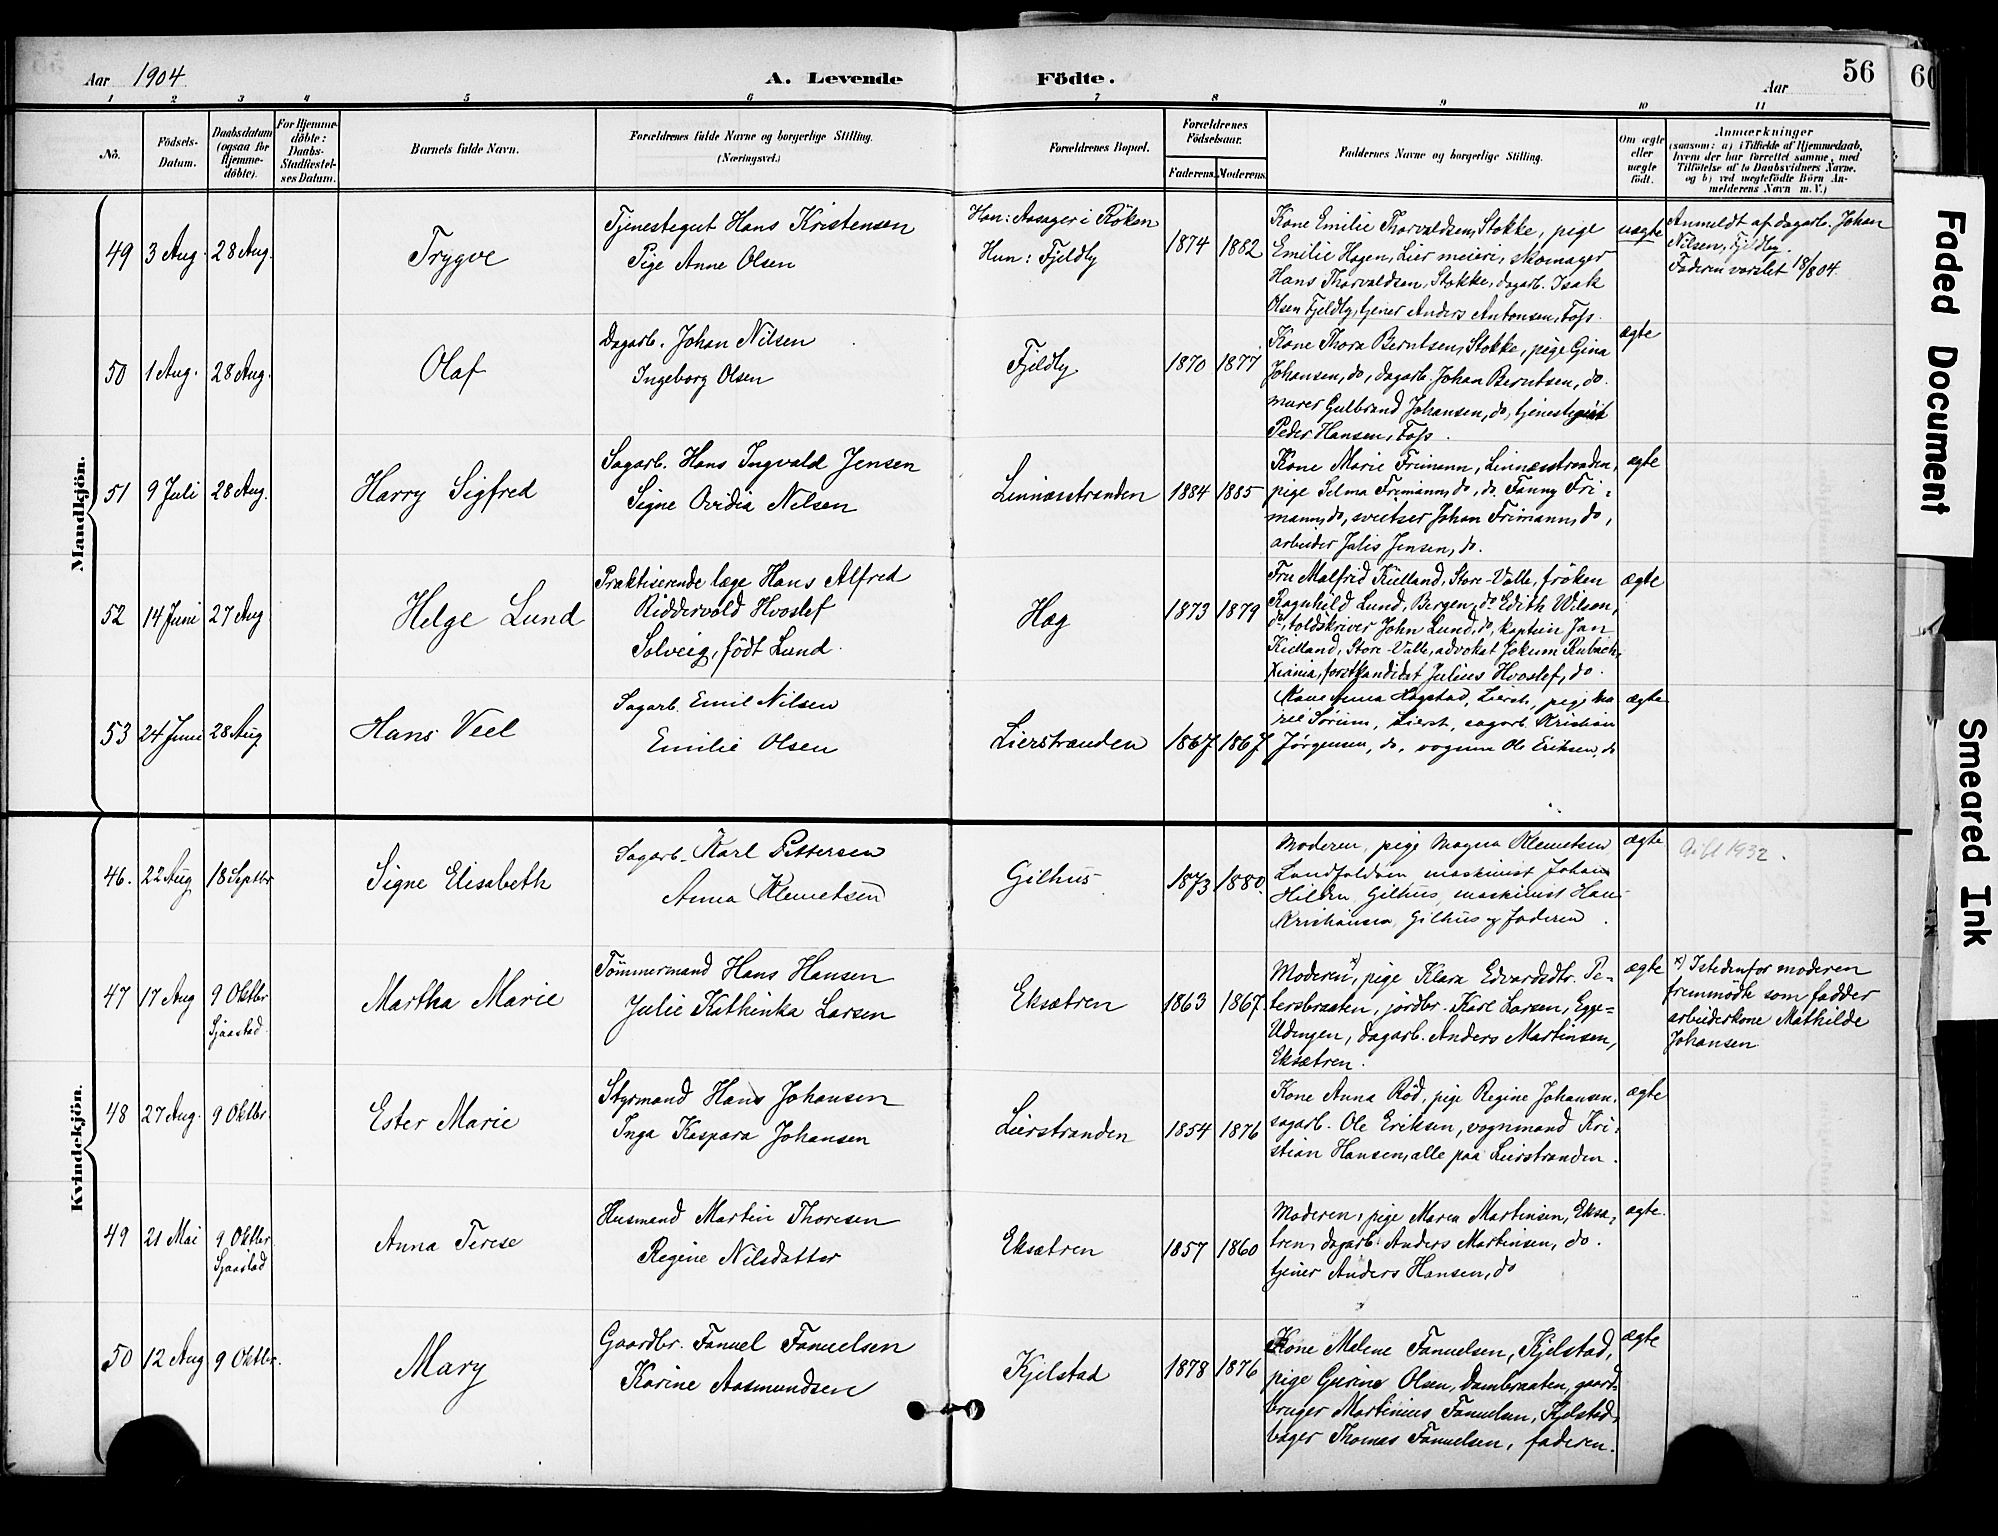 Aar 1904
A. Levende Fødte.
Aar
56
60
1 2 3 4 5 6 7 8 9 10 11
No.
Fødsels-Datum.
Daabsdatum (ogsaa for Hjemme-døbte).
For Hjemme-døbte: Daabs-Stadfæstel-ses Datum.
Barnets fulde Navn.
Forældrenes fulde Navne og borgerlige Stilling. (Næringsvei.)
Forældrenes Bopæl.
Forældrenes Fødselsaar.
Faderens. Moderens.
Faddernes Navne og borgerlige Stilling.
Om ægte eller uægte født.
Anmærkninger
(saasom: a) i Tilfælde af Hjemmedaab, hvem der har forrettet samme, med Tilføielse af to Daabsvidners Navne, og b) ved uægtefødte Børn An-melderens Navn m. V.)
Mandkjön.
49 3 Aug. 28 Aug.
Trygve
Tjenestegut Hans Kristensen
Pige Anne Olsen
Han: Aasager i Röken
Hun: Fjeldby
1874 1882
Kone Emilie Thorvaldsen, Stokke, pige
Emilie Hagen, Lier meieri, skomager
Hans Thorvaldsen, Stokke, dagarb. Isak
Olsen Fjeldby, tjener Anders Antonsen, Foss.
uægte
Anmeldt af dagarb. Johan
Nilsen, Fjeldby.
Faderen varslet 18/8 04.
50 1 Aug. 28 Aug.
Olaf
Dagarb. Johan Nilsen
Ingeborg Olsen
Fjeldby
1870 1877
Kone Thora Berntsen, Stokke, pige Gina
Johansen, do, dagarb. Johan Berntsen, do.
murer Gulbrand Johansen, do, tjenestegut
Peder Hansen, Foss.
ægte
51 9 Juli 28 Aug.
Harry Sigfred
Sagarb. Hans Ingvald Jensen
Signe Ovidia Nilsen
Linnæsstranden
1884 1885
Kone Marie Frimann, Linnæsstranden,
pige Selma Frimann, do, do. Fanny Fri-
mann, do, sveitser Johan Frimann, do,
arbeider Julis Jensen, do.
ægte
52 14 Juni 27 Aug
Helge Lund
Praktiserende læge Hans Alfred
Riddervold Hvoslef
Solveig, födt Lund.
Hag
1873 1879
Fru Malfrid Kielland, Store-Valle, fröken
Ragnhild Lund, Bergen, do Edith Wilson,
do, toldskriver John Lund, do, kaptein Jan
Kielland, Store-Valle, advokat Jokum Rubach,
Kiania, forstkandidat Julius Hvoslef, do.
ægte
53 24 Juni 28 Aug
Hans Veel
Sagarb. Emil Nilsen
Emilie Olsen
Lierstranden
1867 1867
Kone Anna Hagstad, Lierst, pige Ka-
ren Sörum, Lierst, sagarb Kristian
Jørgensen, do, vognm Ole Eriksen, do
ægte
Kvindekjön.
46. 22 Aug 18 Septbr
Signe Elisabeth
Sagarb. Karl Pettersen
Anna Klemetsen
Gilhus
1873 1880.
Moderen, pige Magna Klemetsen
maskinist Johan
Hilden, Gilhus, maskinist Hans
Kristiansen, Gilhus og faderen.
ægte
Gift 1932.
47 17 Aug 9 Oktbr Sjaastad.
Martha Marie
Tömmermand Hans Hansen
Julie Kathinka Larsen
Eksætren
1863 1867.
Moderen x), pige Klara Edvardsdtr. Pe-
tersbraaten, jordbr. Karl Larsen, Egge-
Udengen, dagarb. Anders Martinsen,
Eksætren.
ægte
x) Istedenfor moderen
fremmödte som fadder
arbeiderkone Mathilde
Johansen
48 27 Aug. 9 Oktbr.
Ester Marie
Styrmand Hans Johansen
Inga Kaspara Johansen
Lierstranden
1854 1876
Kone Anna Röd, pige Regine Johansen,
sagarb. Ole Eriksen, vognmand Kri-
stian Hansen, alle paa Lierstranden.
ægte
49 21 Mai 9 Oktbr Sjaastad
Anna Terese
Husmand Martin Thoresen
Regine Nilsdatter
Eksætren
1857 1860
Moderen, pige Maren Martinsen, Eksæ-
tren, dagarb. Anders Martinsen, do.
tjener Anders Hansen, do
ægte.
50 12 Aug 9 Oktbr.
Mary
Gaardbr. Fanuel Fanuelsen
Karine Aasmundsen
Kjelstad
1878 1876
Kone Malene Fanuelsen, Kjelstad,
pige Gurine Olsen, Dambraaten, gaard-
bruger Martinius Fanuelsen, Kjelstad,
bager Thomas Fanuelsen, faderen.
ægte
Faded Document
Smeared Ink